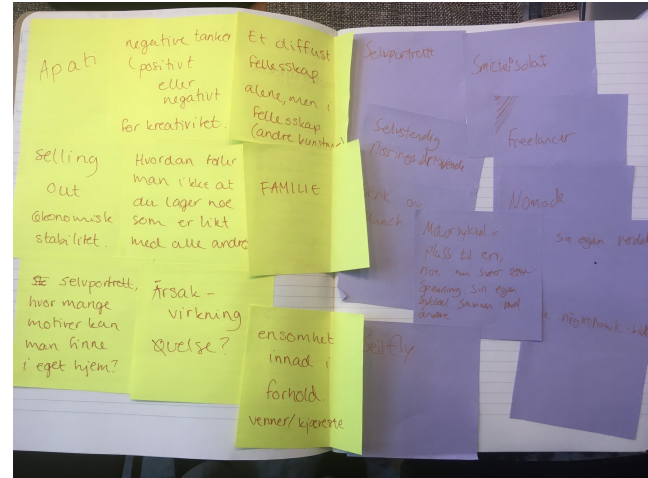 Apati
negative tanker
(positivt
eller
negativt
for kreativitet.
Et diffust
fellesskap
alene, men i
fellesskap
(andre kunstnere)
selling
out
økonomisk
stabilitet.
Hvordan føler
man ikke at
du lager noe
som er likt
med alle andre
FAMILIE
selvportrett,
hvor mange
motiver kan
man finne
i eget hjem?
Årsak -
virkning
Øvelse?
ensomhet
innad i
forhold
venner/kjæreste
Selvportrett
Selvstendig
Næringsdrivende
Munch
Motorsykkel -
plass til en,
noe man
spenning, sin egen
sykkel sammen med
andre
Selfly
Freelancer
Nomade
sin egen verden